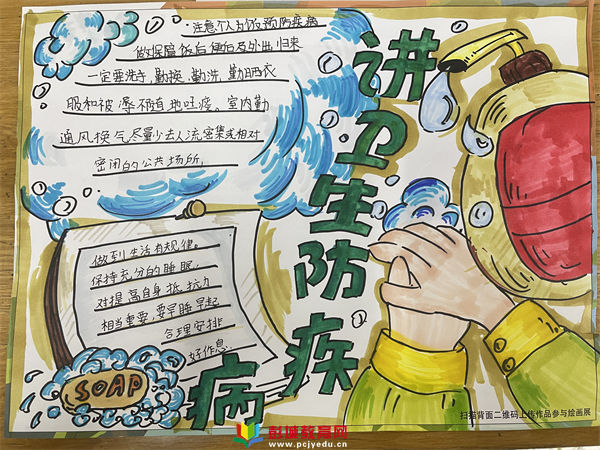 讲卫生防疾病
注意个人卫生预防疾病
做好保温饭后便后及外出归来
一定要洗手,勤换、勤洗、勤晒衣
服和被褥不随地吐痰。室内勤
通风换气尽量少去人流密集或相对
密闭的公共场所,
做到生活有规律。
保持充分的睡眠
对提高自身抵抗力
相当重要,要早睡早起
合理安排
好作息.
SOAP
扫描背面二维码上传作品参与绘画展
彭城教育网
www.pcjyedu.cn